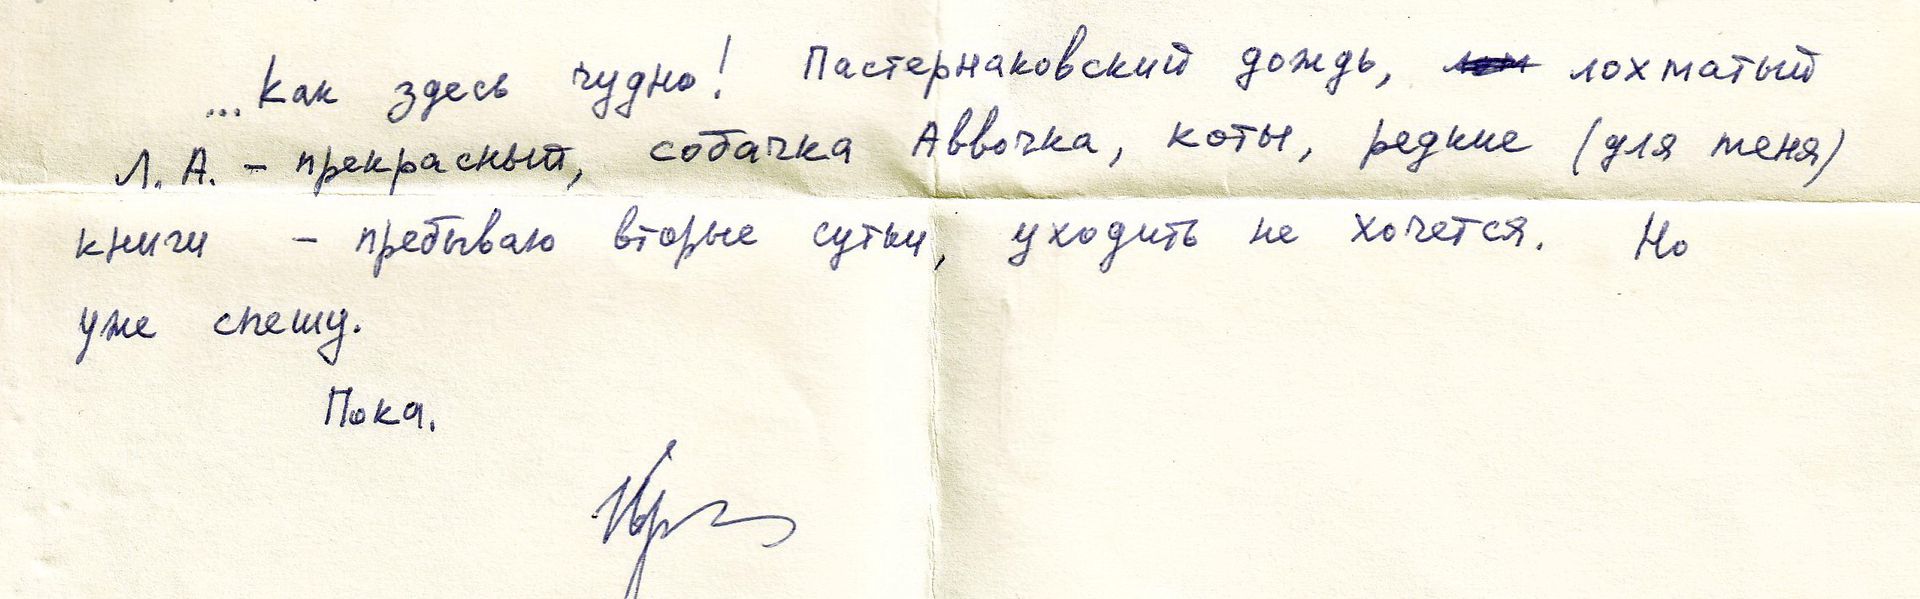 ...Как здесь чудно! Пастернаковский дождь, лохматый
Л. А. – прекрасный, собачка Аввочка, коты, редкие (для меня)
книги – пребываю вторые сутки, уходить не хочется. Но
уже спешу.
Пока.